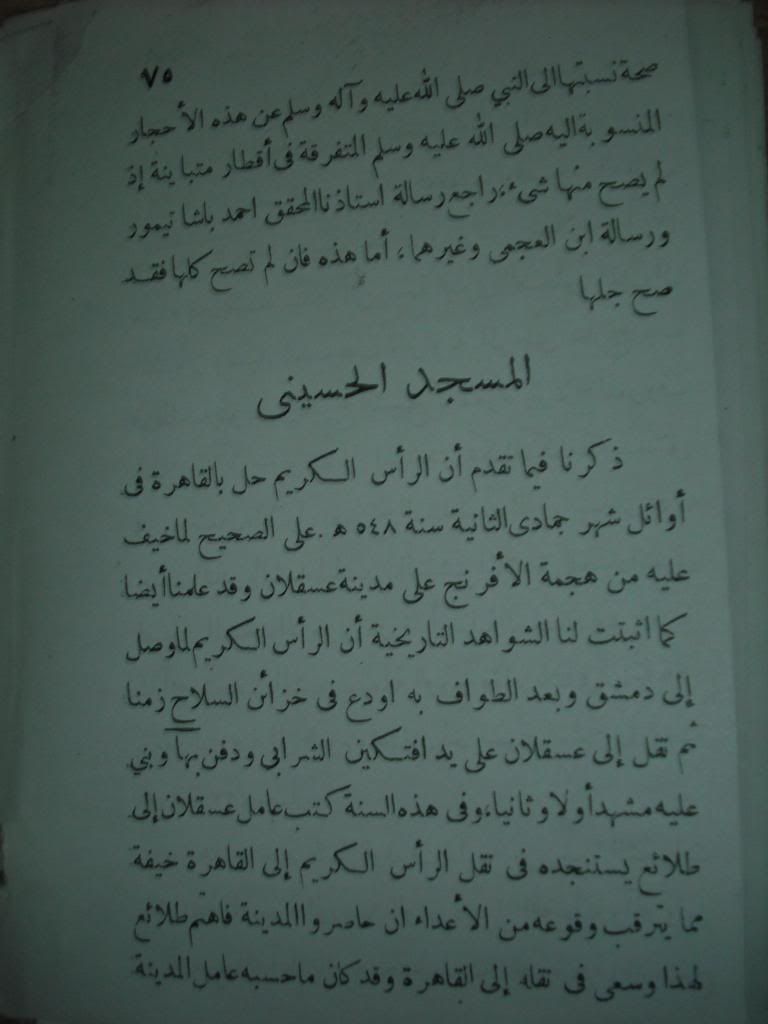 ٧٥
صحة نسبتها الى النبي صلى الله عليه وآله وسلم عن هذه الأحجار
المنسوبة اليه صلى الله عليه وسلم المتفرقة فى أقطار متباينة إذ
لم يصح منها شىء، راجع رسالة استاذنا المحقق احمد باشا تيمور
ورسالة ابن العجمى وغيرهما، أما هذه فان لم تصح كلها فقد
صح جلها
المسجد الحسينى
ذكرنا فيما تقدم أن الرأس الكريم حل بالقاهرة فى
أوائل شهر جمادى الثانية سنة ٥٤٨ ه . على الصحيح لما خيف
عليه من هجمة الأفرنج على مدينة عسقلان وقد علمنا أيضا
كما اثبتت لنا الشواهد التاريخية أن الرأس الكريم لما وصل
إلى دمشق وبعد الطواف به اودع فى خزائن السلاح زمنا
ثم نقل إلى عسقلان على يد افتكين الشرابى ودفن بها وبني
عليه مشهد أولا وثانيا، وفى هذه السنة كتب عامل عسقلان إلى
طلائع يستنجده فى نقل الرأس الكريم إلى القاهرة خيفة
مما يترقب وقوعه من الأعداء ان حاصروا المدينة فاهتم طلائع
لهذا وسعى فى نقله إلى القاهرة وقد كان ما حسبه عامل المدينة